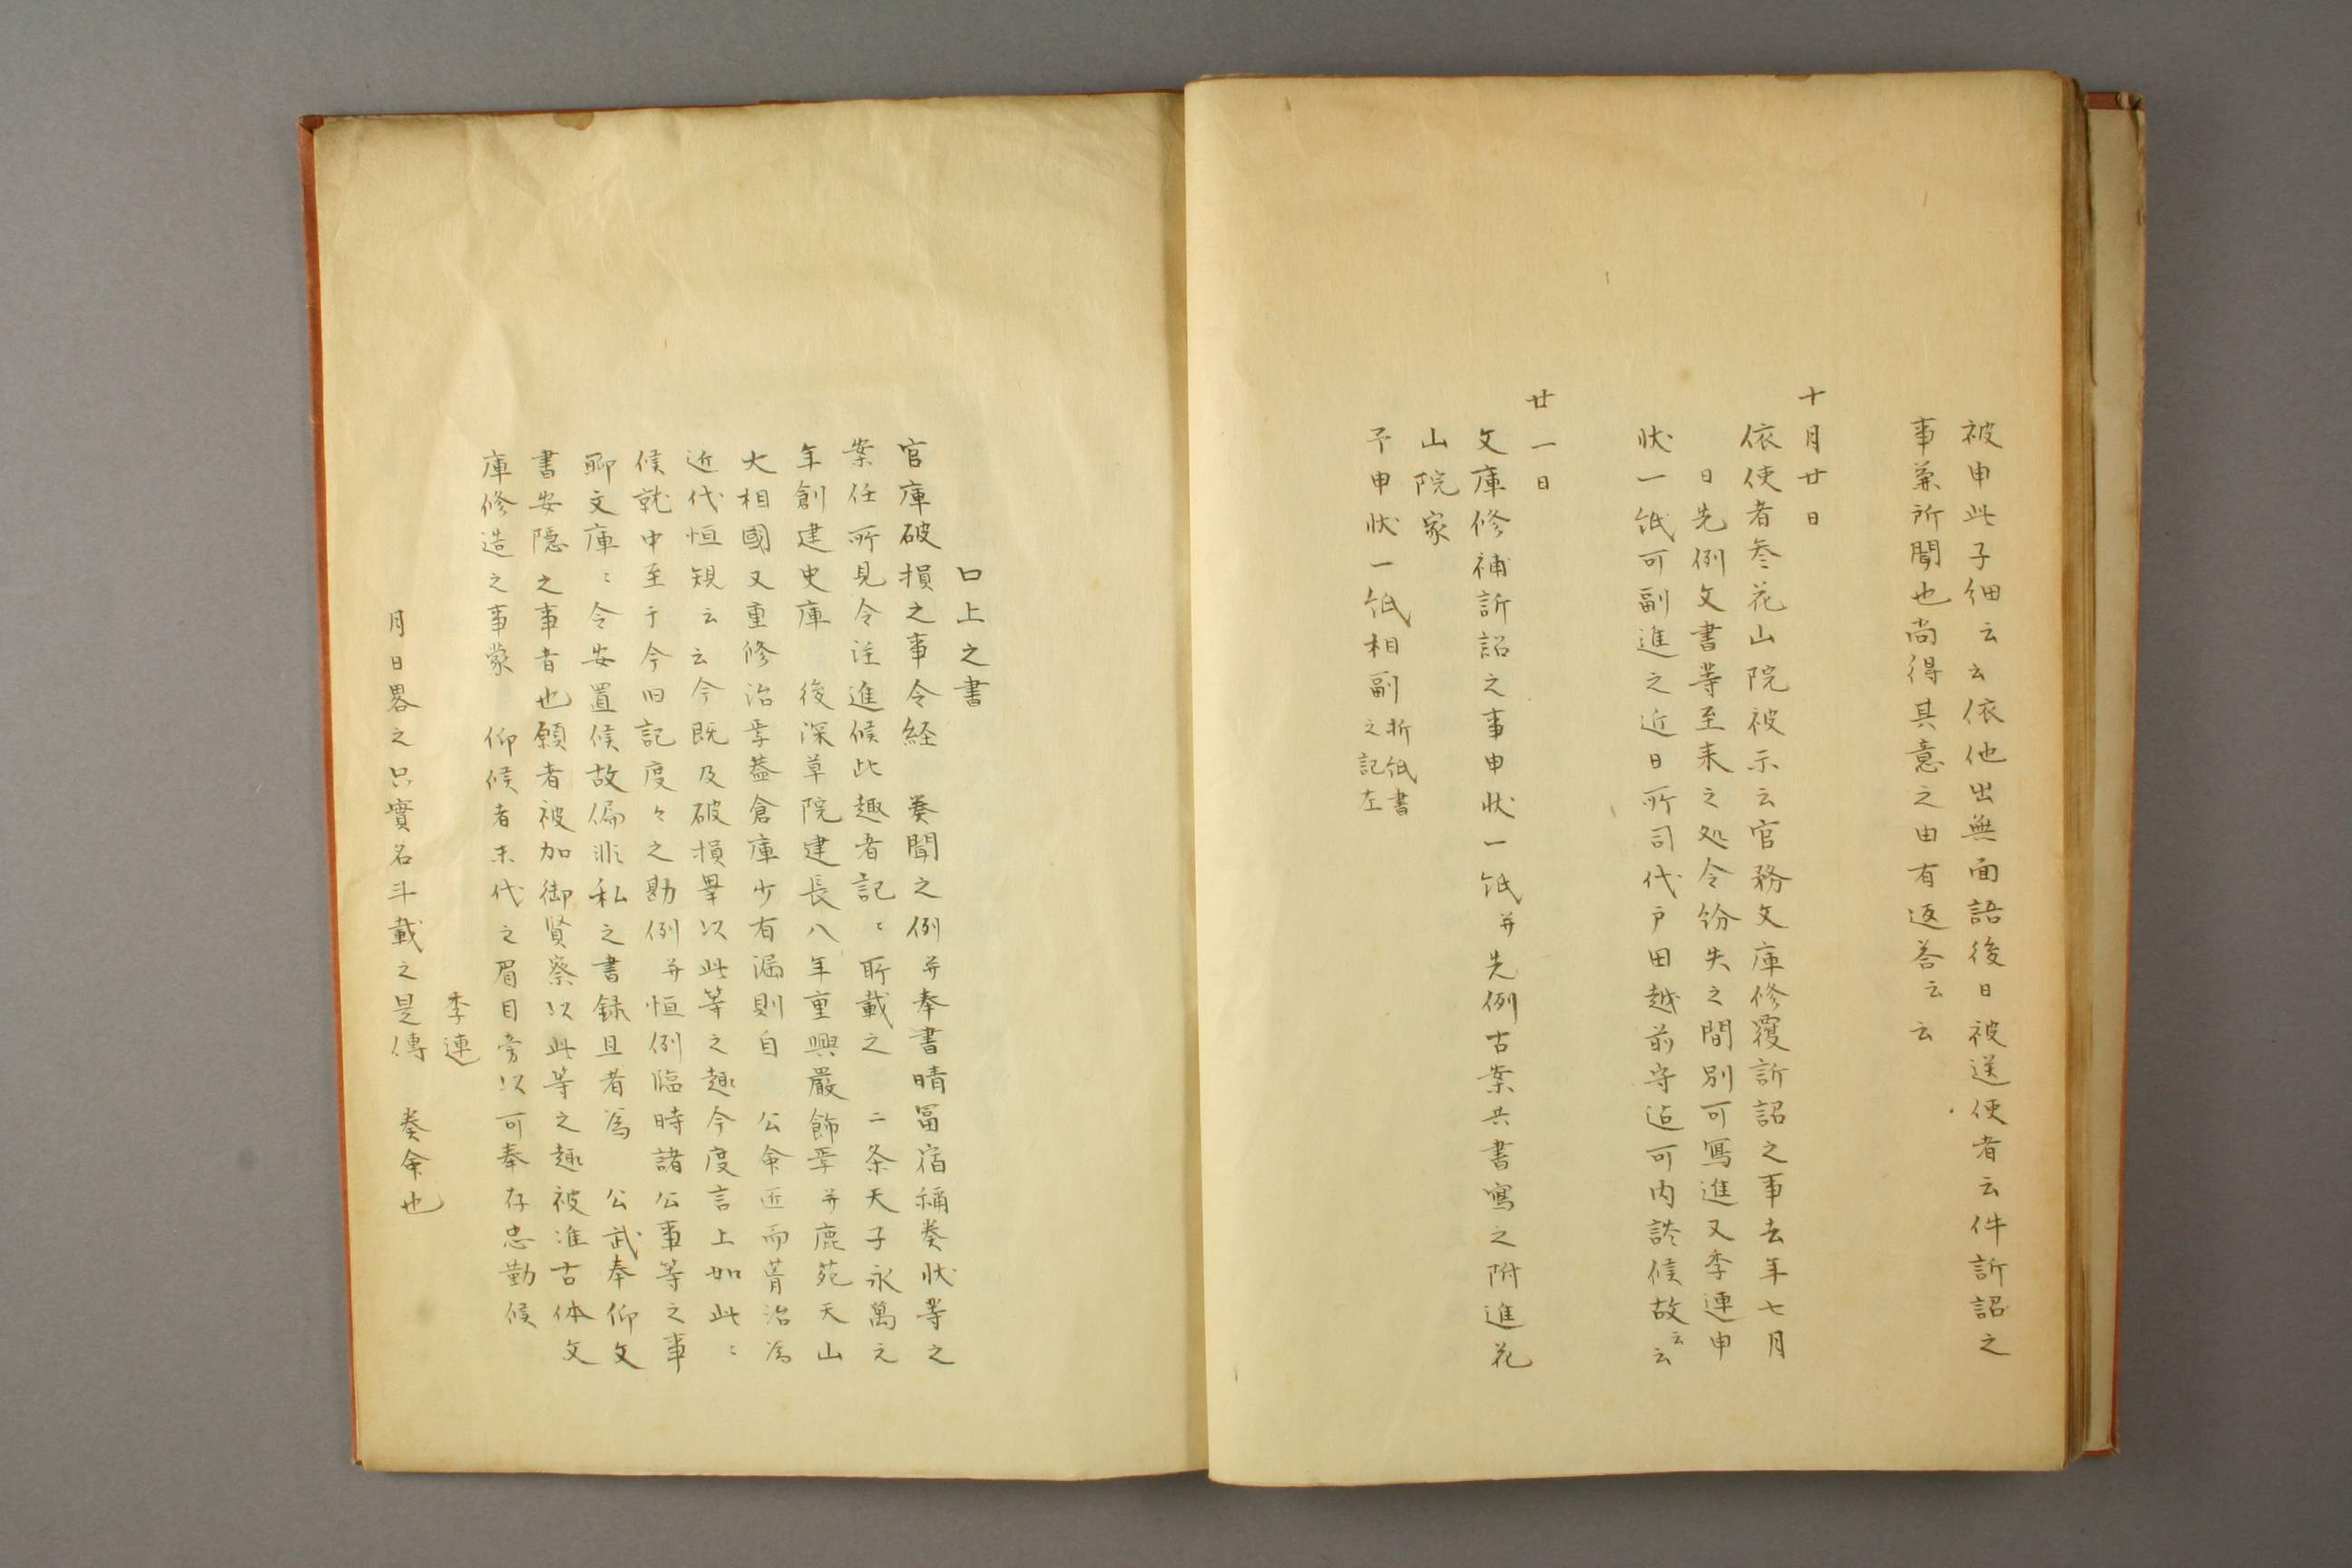 被申此子細云云依他出無面語後日被送使者云件訴詔之
事兼所聞也尚得其意之由有返答云云
十月廿日
依使者参花山院被示云官務文庫修覆訴詔之事去年七月
日先例文書等至来之処令紛失之間別可寫進又季連申
状一紙可副進之近日所司代戸田越前守迄可内談候故云云
廿一日
文庫修補訴詔之事申状一紙并先例古案共書寫之附進花
山院家
予申状一紙相副折紙書
之記左
口上之書
官庫破損之事令経　奏聞之例并奉書晴冨宿祢奏状等之
案任所見令注進候此趣者記〻所載之　二条天子永萬元
年創建史庫　後深草院建長八年重興嚴飾畢并鹿苑天山
大相國又重修治畢蓋倉庫少有漏則自　公命匠而葺治為
近代恒規云云今既及破損畢以此等之趣今度言上如此〻
候就中至于今旧記度々之勘例并恒例臨時諸公事等之事
聊文庫〻令安置候故偏非私之書録且者為　公武奉仰文
書安隠之事者也願者被加御賢察以此等之趣被准古体文
庫修造之事蒙　仰候者末代之眉目旁以可奉存忠勤候
季連
月日畧之只實名斗載之是傳　奏命也